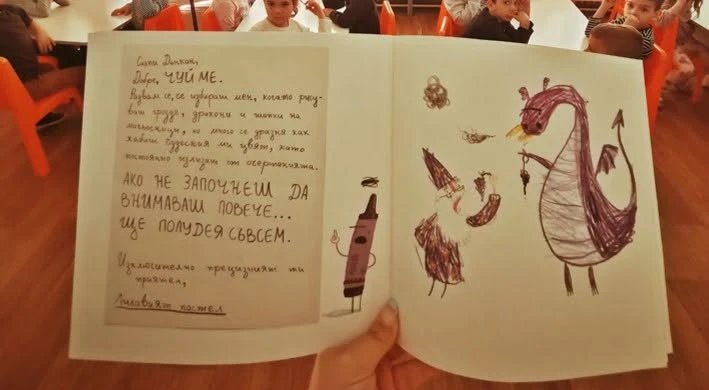 Скъпи Дънкан,
Добре, ЧУЙ МЕ.
Радвам се, че избираш мен, когато рису-
ваш грозде, дракони и шапки на
магьосници, но много се дразня как
хабиш чудесния ми цвят, като
постоянно излизаш от очертанията.
АКО НЕ ЗАПОЧНЕШ ДА
ВНИМАВАШ ПОВЕЧЕ...
ЩЕ ПОЛУДЕЯ СЪВСЕМ.
Изключително прецизният ти
приятел,
Лилавият пастел